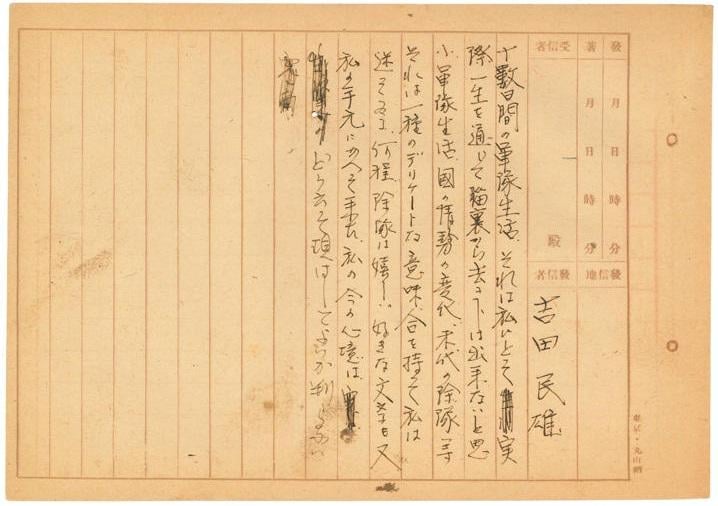 發 月 日 時 分
著 月 日 時 分
受信者 殿
發信地
發信者
吉田民雄
十数日間の軍隊生活、それは私にとって 実
際一生を通じて 裏から去る は出来ないと思
ふ、軍隊生活、國の情勢の変代、末代の除隊、等
それは一種のデリケートな意味合を持って私は
迷って 、何程、除隊は嬉しい、好きな文学も又
私の手元にかへって来た、私の今の心境は、
どう云って現はしてよいか判らない
東京・丸山